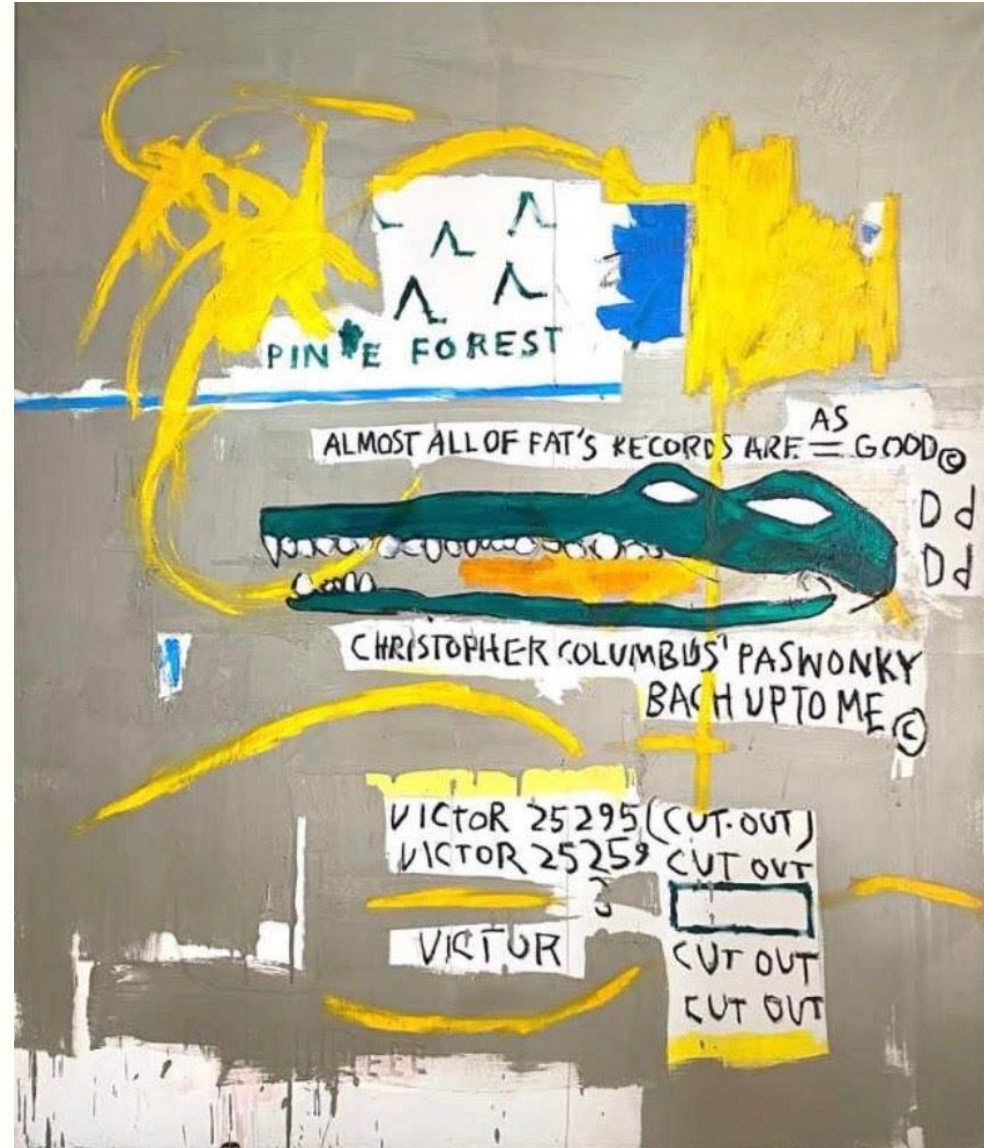 PINE FOREST
AS
ALMOST ALL OF FAT'S RECORDS ARE = GOOD©
D d
D d
CHRISTOPHER COLUMBUS' PASWONKY
BACH UP TO ME ©
VICTOR 25295 (CUT-OUT)
VICTOR 25259 CUT OUT
3
VICTOR CUT OUT
CUT OUT